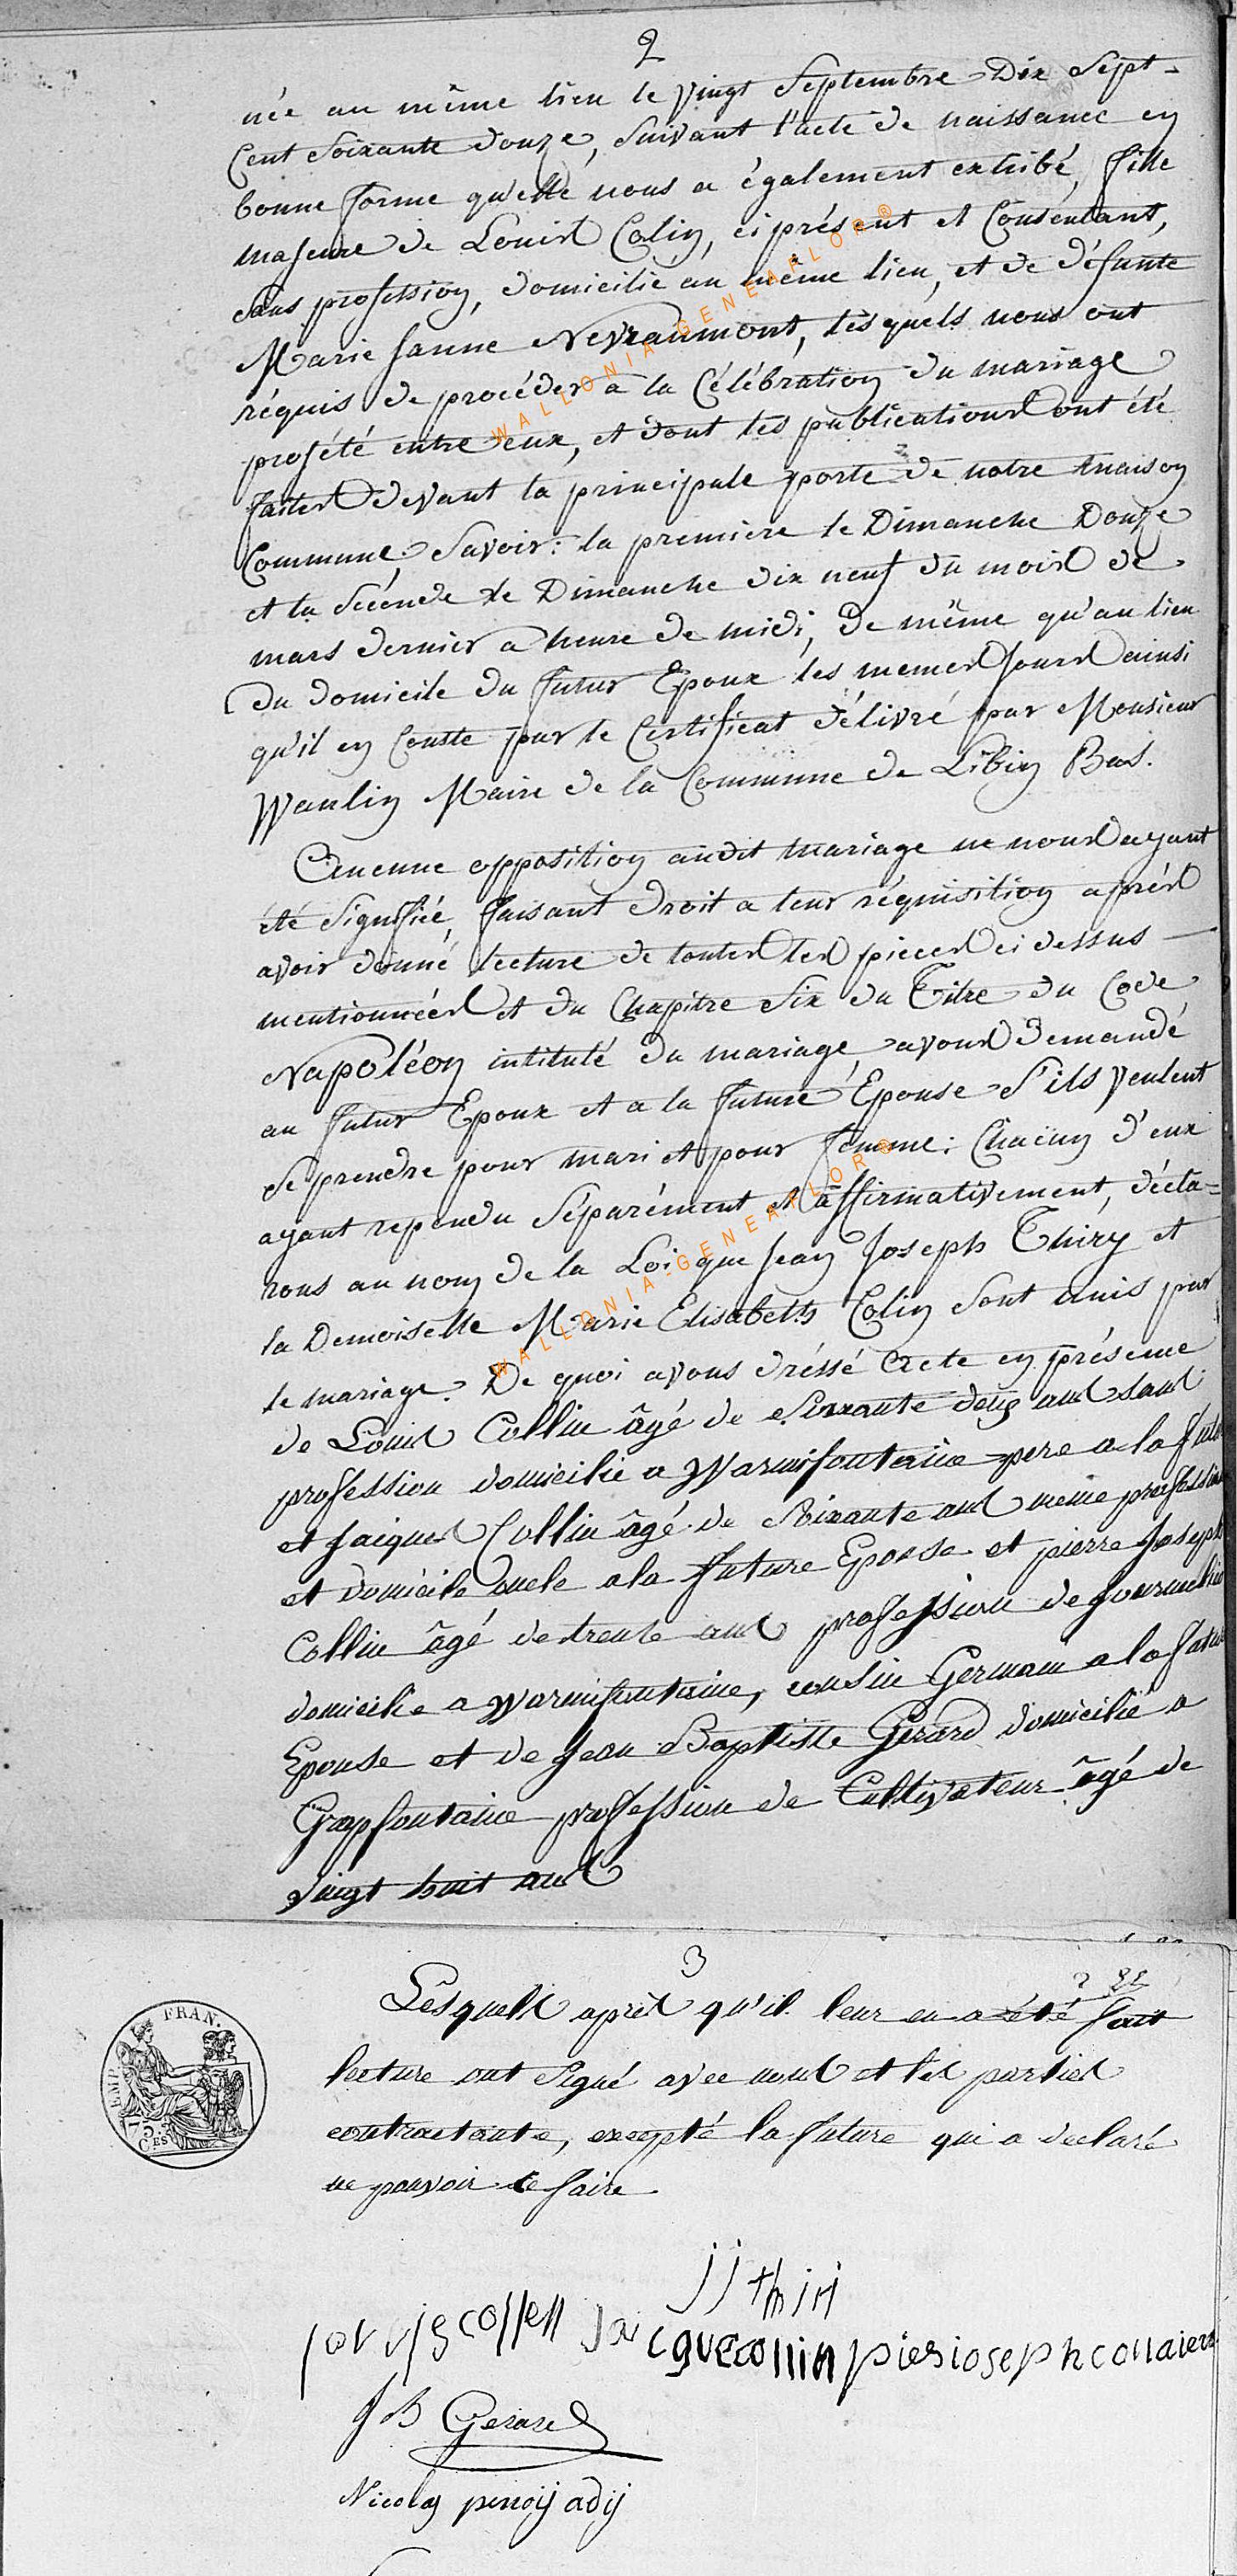 2
née au même lieu le vingt Septembre Dix Sept-
Cent Soixante douze, Suivant l'acte de naissance en
bonne forme qu'elle nous a également exhibé, fille
majeure de Louis Colin, ci présent et Consentant,
sans profession, domicilié au même lieu, et de défunte
Marie Janne Nevraumont, lesquels nous ont
réquis de procéder à la Célébration du mariage
projété entre eux, et dont les publications ont été
faites devant la principale porte de notre maison
Commune, Savoir: la première le Dimanche Douze
et la Séconde le Dimanche dix neuf du mois de
mars dernier a heure de midi, de même qu'au lieu
du domicile du futur Epoux les memes jours ainsi
qu'il en Conste par le Certificat délivré par Monsieur
Waulin Maire de la Commune de Libin Bas.
Aucune opposition audit mariage ne nous ayant
été Signifiée, faisant droit a leur réquisition après
avoir donné lecture de toutes les pieces ci dessus
mentionnées et du Chapitre Six du Titre du Code
Napoléon intitulé du mariage, avons demandé
au futur Epoux et a la future Epouse s'ils veulent
se prendre pour mari et pour femme: Chacun d'eux
ayant repondu Séparément et affirmativement, décla=
rons au nom de la Loi que Jean Joseph Thiry et
la Demoiselle Marie Elisabeth Colin Sont unis par
le mariage. De quoi avons dréssé Acte en présence
de Louis Collin âgé de Soixante deux ans sans
profession domicilié a Warmifontaine pere a la futu
et Jaique Collin âgé de Soixante ans meme profession
et domicile oncle a la future Epouse et pierre Joseph
Collin âgé de trente ans profession de Journalier
domicilie a Warmifontaine, cousin Germain a la futur
Epouse et de Jean Baptiste Gerard domicilié a
Grapfontaine profession de Cultivateur âgé de
vingt huit ans
3
Lésquels après qu'il leur en a été fait
lecture ont Signé avec nous et les parties
contractante, excepté la future qui a declaré
ne pouvoir le faire.
FRAN.
EMP.
75
CES
jj thiri
collen Jacque collin pierioseph collai
J B Gerard
Nicolas pinoij adij
WALLONIA-GENEAFLOR®
WALLONIA-GENEAFLOR®